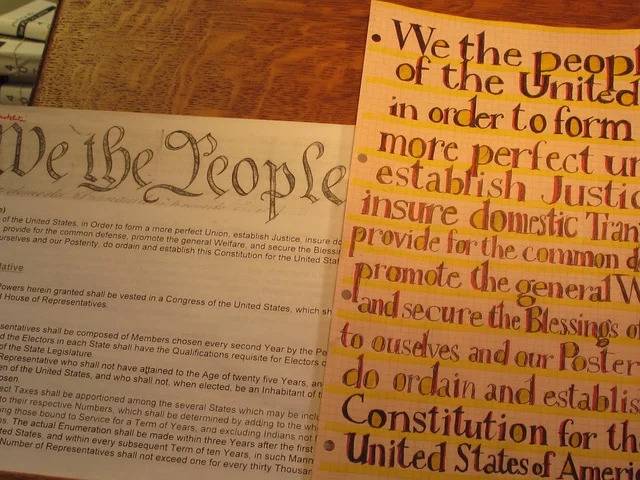 We the People
of the United States, in Order to form a more perfect Union, establish Justice, insure do
provide for the common defense, promote the general Welfare, and secure the Blessin
urselves and our Posterity, do ordain and establish this Constitution for the United Stat
lative
Powers herein granted shall be vested in a Congress of the United States, which sh
d House of Representatives.
sentatives shall be composed of Members chosen every second Year by the Pe
d the Electors in each State shall have the Qualifications requisite for Electors o
of the State Legislature.
Representative who shall not have attained to the Age of twenty five Years, an
en of the United States, and who shall not, when elected, be an Inhabitant of t
osen.
ect Taxes shall be apportioned among the several States which may be inclu
to their respective Numbers, which shall be determined by adding to the wh
ing those bound to Service for a Term of Years, and excluding Indians not
ns. The actual Enumeration shall be made within three Years after the first
ted States, and within every subsequent Term of ten Years, in such Mann
Number of Representatives shall not exceed one for every thirty Thousan
We the peopl
of the United
in order to form
more perfect un
establish Justic
insure domestic Tran
provide for the common d
promote the general W
and secure the Blessings of
to ouselves and our Poster
do ordain and establis
Constitution for th
United States of Americ